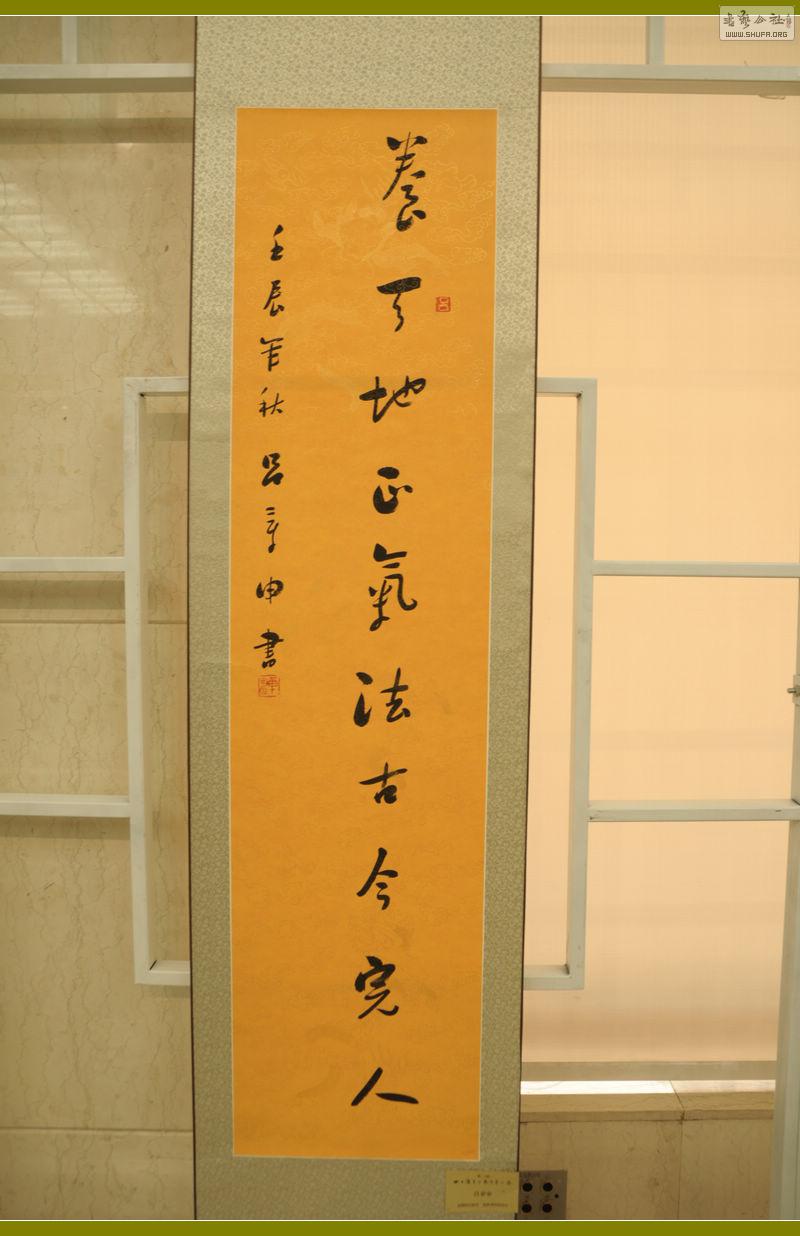 養天地正氣法古今完人
壬辰年秋呂章申書
呂
書藝公社
WWW.SHUFA.ORG